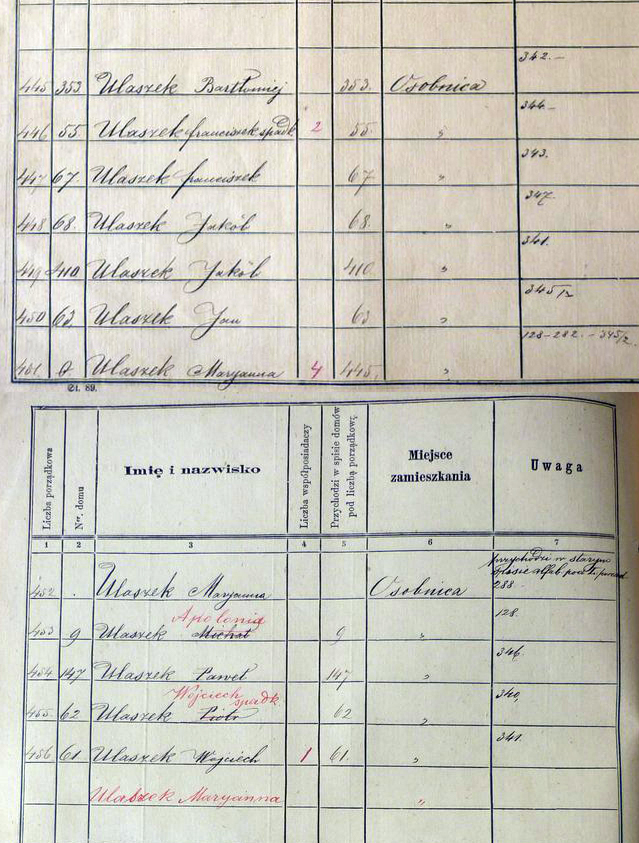 342.–
445 353 Ulaszek Bartłomiej 353. Osobnica
344.–
446 55 Ulaszek franciszek spadk 2 55. „
343.
447 67. Ulaszek franciszek 67 „
347.
448 68. Ulaszek Jakób 68. „
341.
449 410 Ulaszek Jakób 410 „
345/2
450 63. Ulaszek Jan 63 „
128–282.–345/2.
451 Ulaszek Maryanna 4 445. „
St. 89.
Liczba porządkowa
Ner. domu
Imię i nazwisko
Liczba współposiadaczy
Przychodzi w spisie domów pod liczbą porządkową
Miejsce zamieszkania
Uwaga
1 2 3 4 5 6 7
przychodzi w starym
288.–
452 . Ulaszek Maryanna Osobnica
Apolonia
128.
453 9 Ulaszek Michał 9 „
346.
454 147 Ulaszek Paweł 147 „
Wojciech spadk
340,
455. 62 Ulaszek Piotr 62 „
341.
456 61 Ulaszek Wojciech 1 61. „
Ulaszek Maryanna „